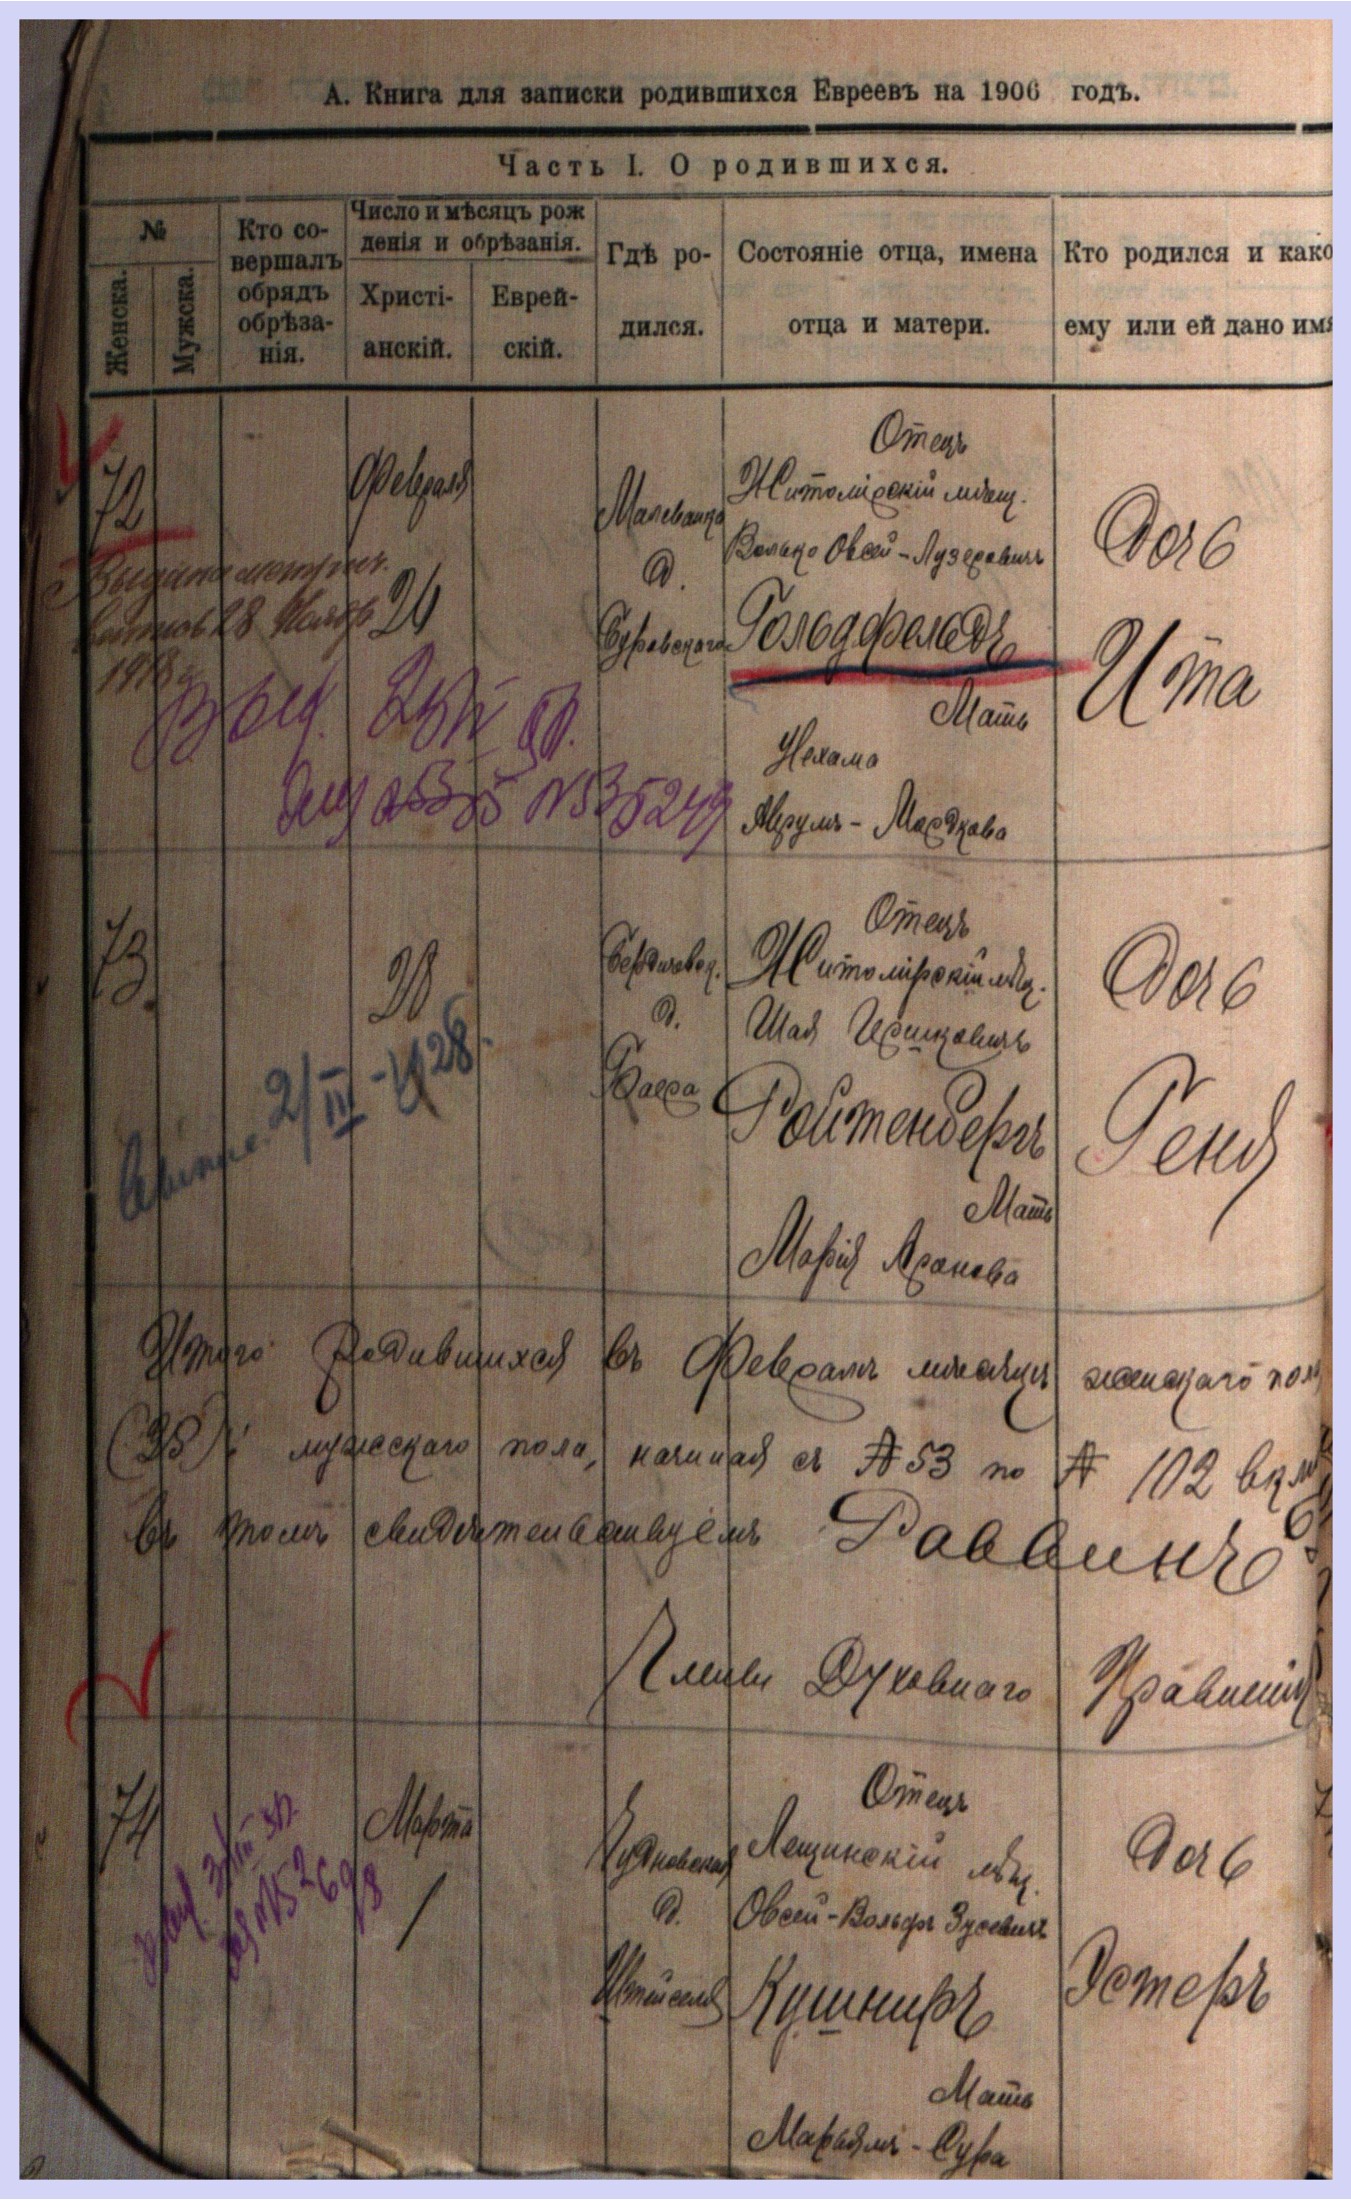 А. Книга для записки родившихся Евреевъ на 1906 годъ.
Часть I. О родившихся.
№
Женска.
Мужска.
Кто со-
вершалъ
обрядъ
обрѣза-
нія.
Число и мѣсяцъ рож
денія и обрѣзанія.
Христі-
анскій.
Еврей-
скій.
Гдѣ ро-
дился.
Состояніе отца, имена
отца и матери.
Кто родился и како
ему или ей дано имя
72
Февраля
26
Малеванка
д.
Буравскаго
Отецъ
Житомірскій мѣщ.
Волько Овсей-Лузеровичъ
Гольдфельдъ
Мать
Нехама
Аврумъ-Мордкова
Дочь
Ита
28 Ноябр
1913 г.
73
28
Бердичевск.
д.
Отецъ
Житомірскій мѣщ.
Шая Ицковичъ
Ройтенбергъ
Мать
Марія Аронова
Дочь
Геня
2/III-1928.
Итого родившихся въ Февралѣ мѣсяцѣ женскаго пола
(35) мужескаго пола, начиная съ № 53 по № 102 вклю
въ томъ свидѣтельствуемъ Раввинъ
Члены Духовнаго Правленія
74
Марта
1
Чудновская
д.
Штейселя
Отецъ
Лещинскій мѣщ.
Овсей-Вольфъ Зусевичъ
Кушниръ
Мать
Марьямъ-Сура
Дочь
Эстеръ